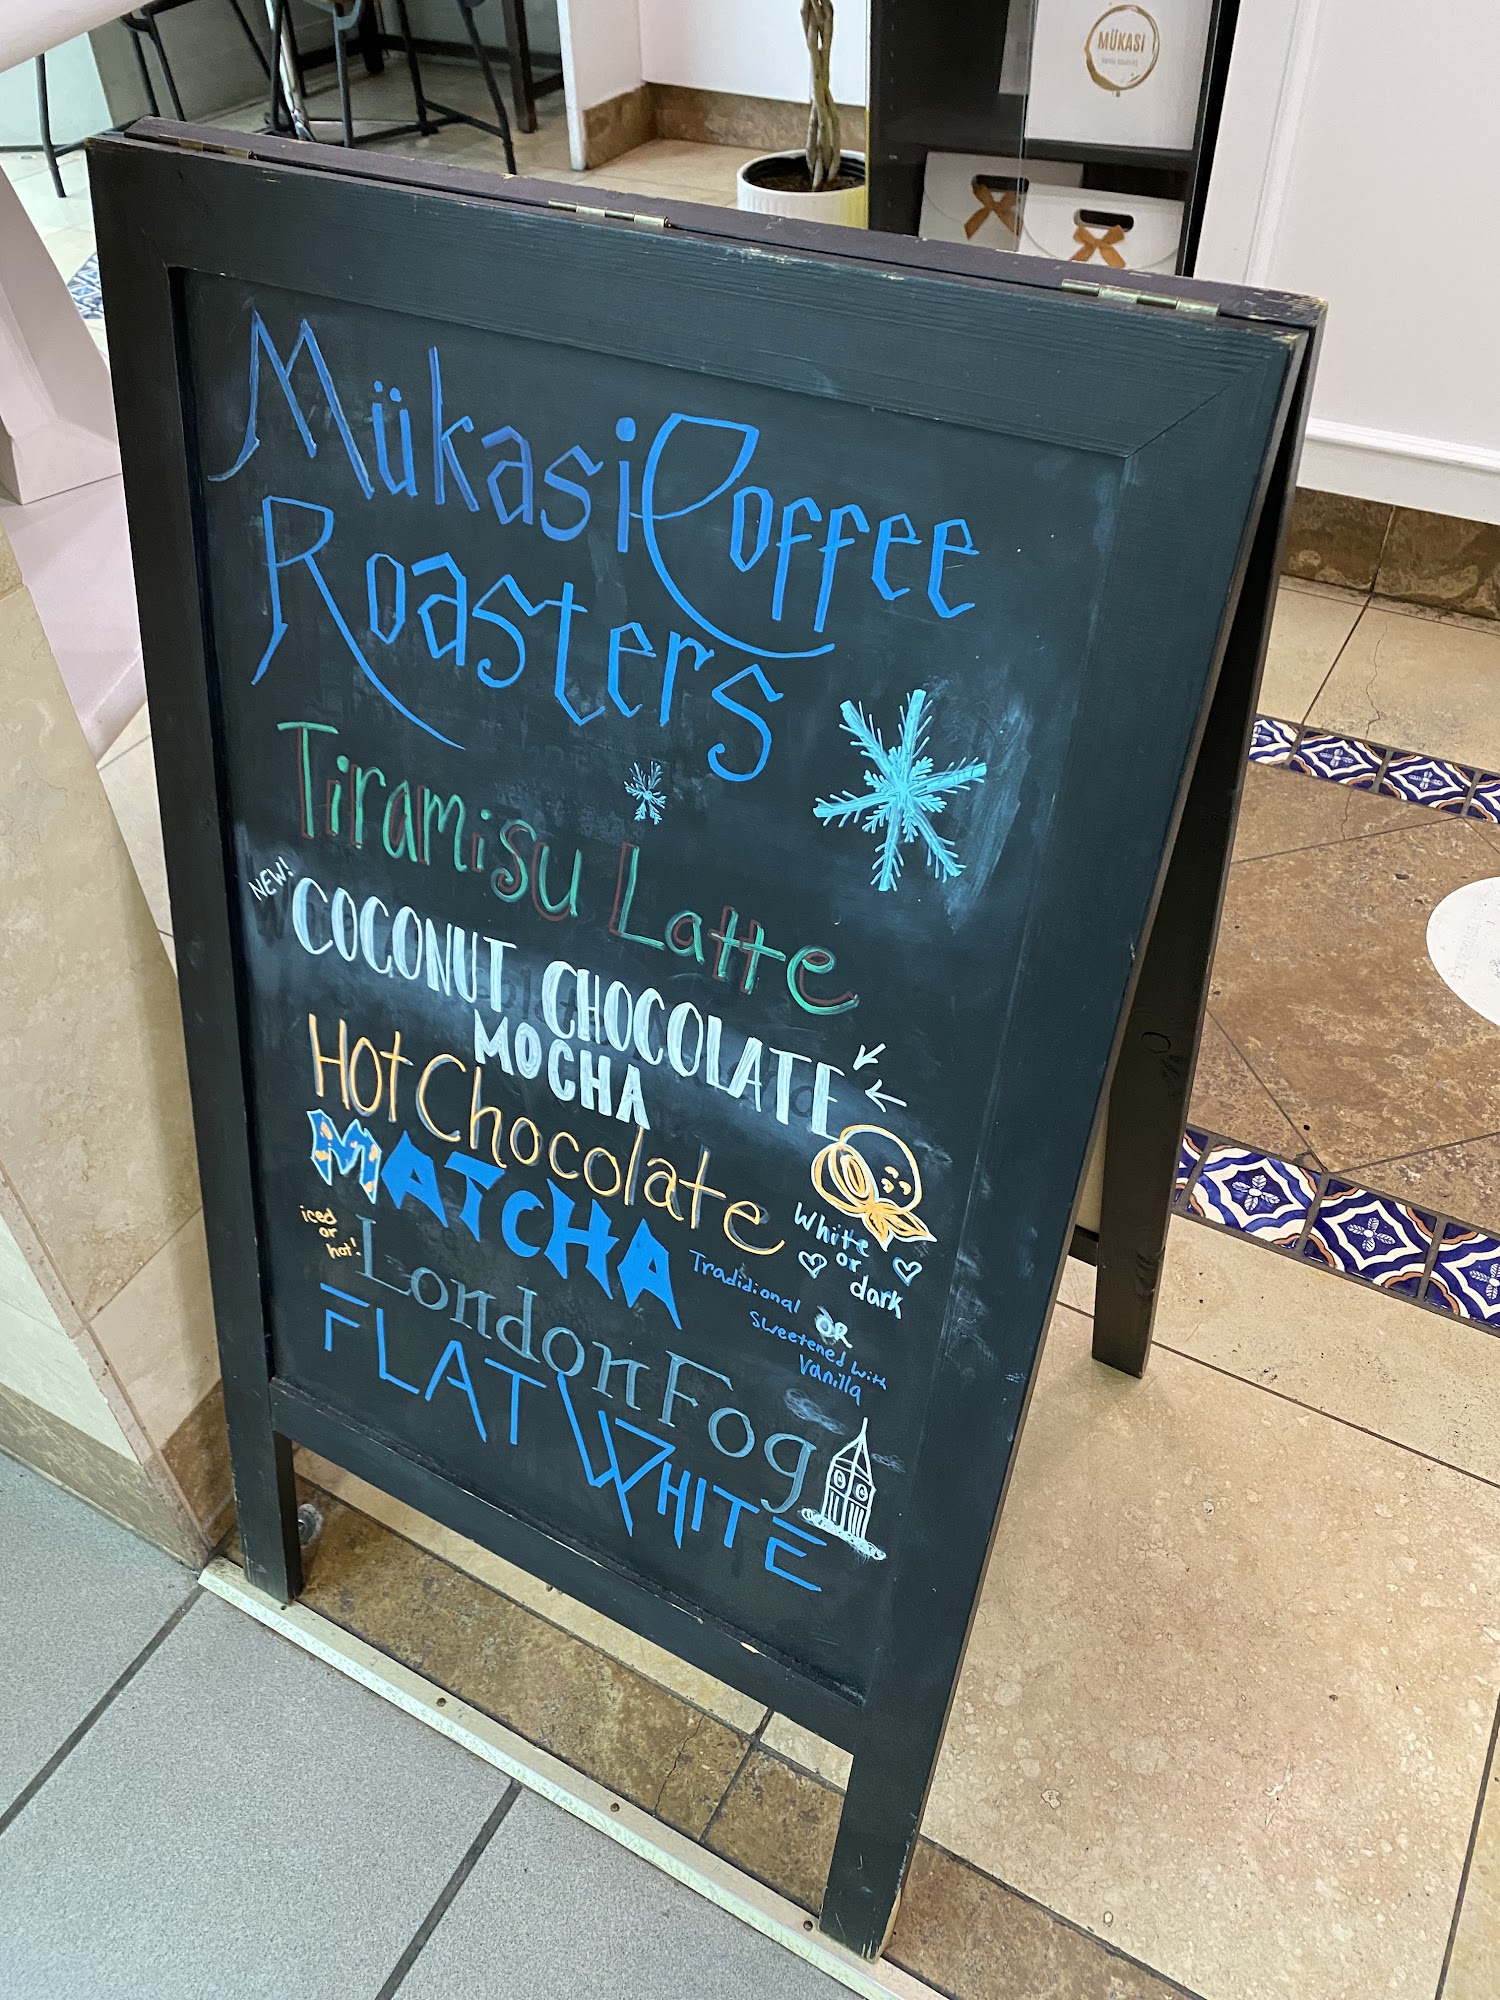 MÜKASI
Mükasi Coffee
Roasters
Tiramisu Latte
NEW!
COCONUT CHOCOLATE
MOCHA
Hot Chocolate
White
or
dark
MATCHA
iced
or
hot!
Tradidional
OR
Sweetened with
Vanilla
London Fog
FLAT WHITE